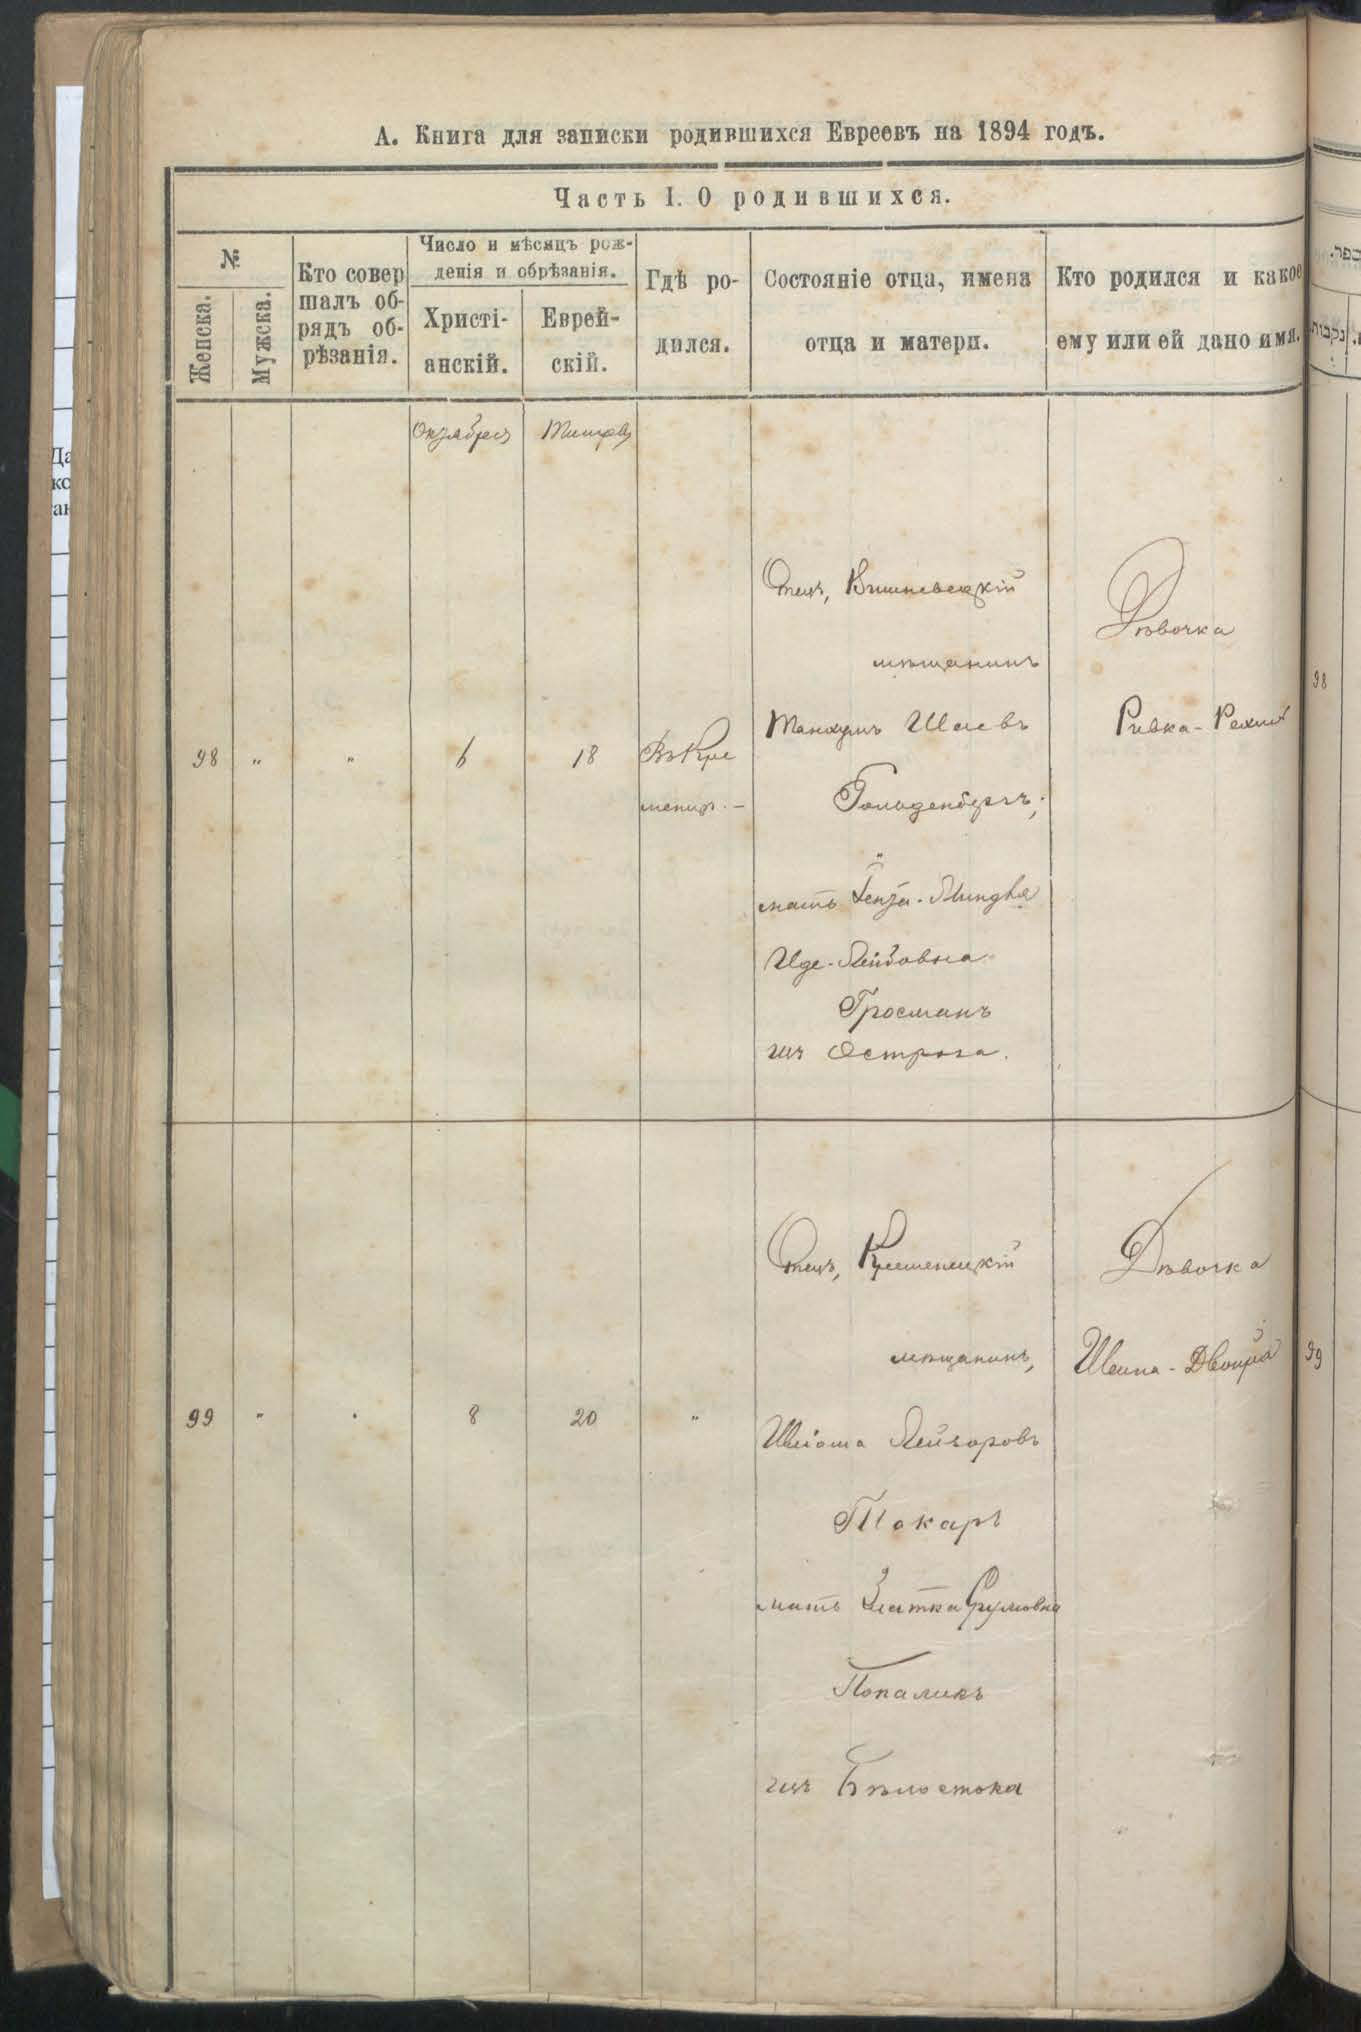 А. Книга для записки родившихся Евреевъ на 1894 годъ.
Часть I. О родившихся.
№
Женска.
Мужска.
Кто совер
шалъ об-
рядъ об-
рѣзанія.
Число и мѣсяцъ рож-
денія и обрѣзанія.
Христі-
анскій.
Еврей-
скій.
Гдѣ ро-
дился.
Состояніе отца, имена
отца и матери.
Кто родился и какое
ему или ей дано имя.
Октябрь
Тишри
98
"
"
6
18
Въ Кре
менцѣ. –
Отецъ, Вишневецкій
мѣщанинъ
Танхумъ Шаевъ
Гольденбергъ;
мать Генза-Миндля
Иде-Лейбовна
Гросманъ
изъ Острога.
Дѣвочка
Ривка-Рехля
98
99
"
"
8
20
"
Отецъ, Кременецкій
мѣщанинъ,
Шліома Лейзоровъ
Токарь
мать Златка Срулевна
изъ Бѣлостока
Дѣвочка
Шеина-Двойра
99
נקבות
Да
ко
ан